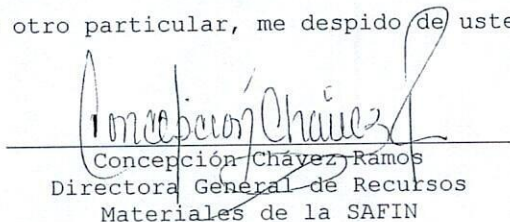 otro particular, me despido de uste
Concepción Chávez
Concepción Chávez Ramos
Directora General de Recursos
Materiales de la SAFIN